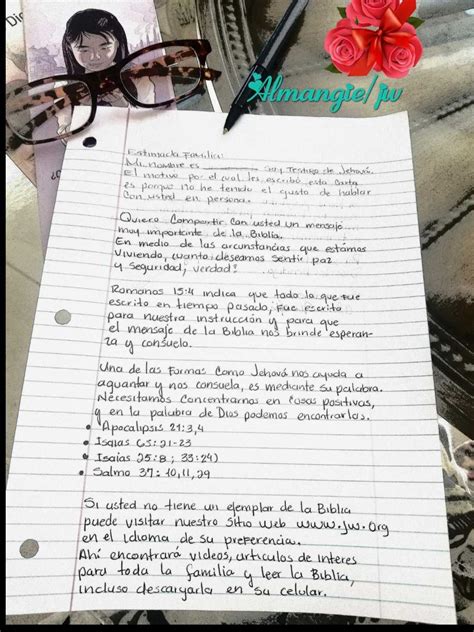 Almangie/jw
Estimada Familia:
Mi nombre es ________ soy Testigo de Jehová.
El motivo por el cual les escribó esta carta
es porque no he tenido el gusto de hablar
con usted en persona.
Quiero Compartir con usted un mensaje
muy importante de la Biblia.
En medio de las circunstancias que estamos
viviendo, cuanto deseamos sentir paz
y seguridad, verdad?
Romanos 15:4 indica que todo lo que fue
escrito en tiempo pasado, fue escrito
para nuestra instrucción y para que
el mensaje de la Biblia nos brinde esperan-
za y consuelo.
Una de las formas como Jehová nos ayuda a
aguantar y nos consuela, es mediante su palabra.
Necesitamos concentrarnos en cosas positivas,
y en la palabra de Dios podemos encontrarlas.
• Apocalipsis 21:3,4
• Isaías 65:21-23
• Isaías 25:8; 33:24)
• Salmo 37:10,11,29
Si usted no tiene un ejemplar de la Biblia
puede visitar nuestro sitio web www.jw.org
en el idioma de su preferencia.
Ahí encontrará videos, artículos de interes
para toda la familia y leer la Biblia,
incluso descargarla en su celular.